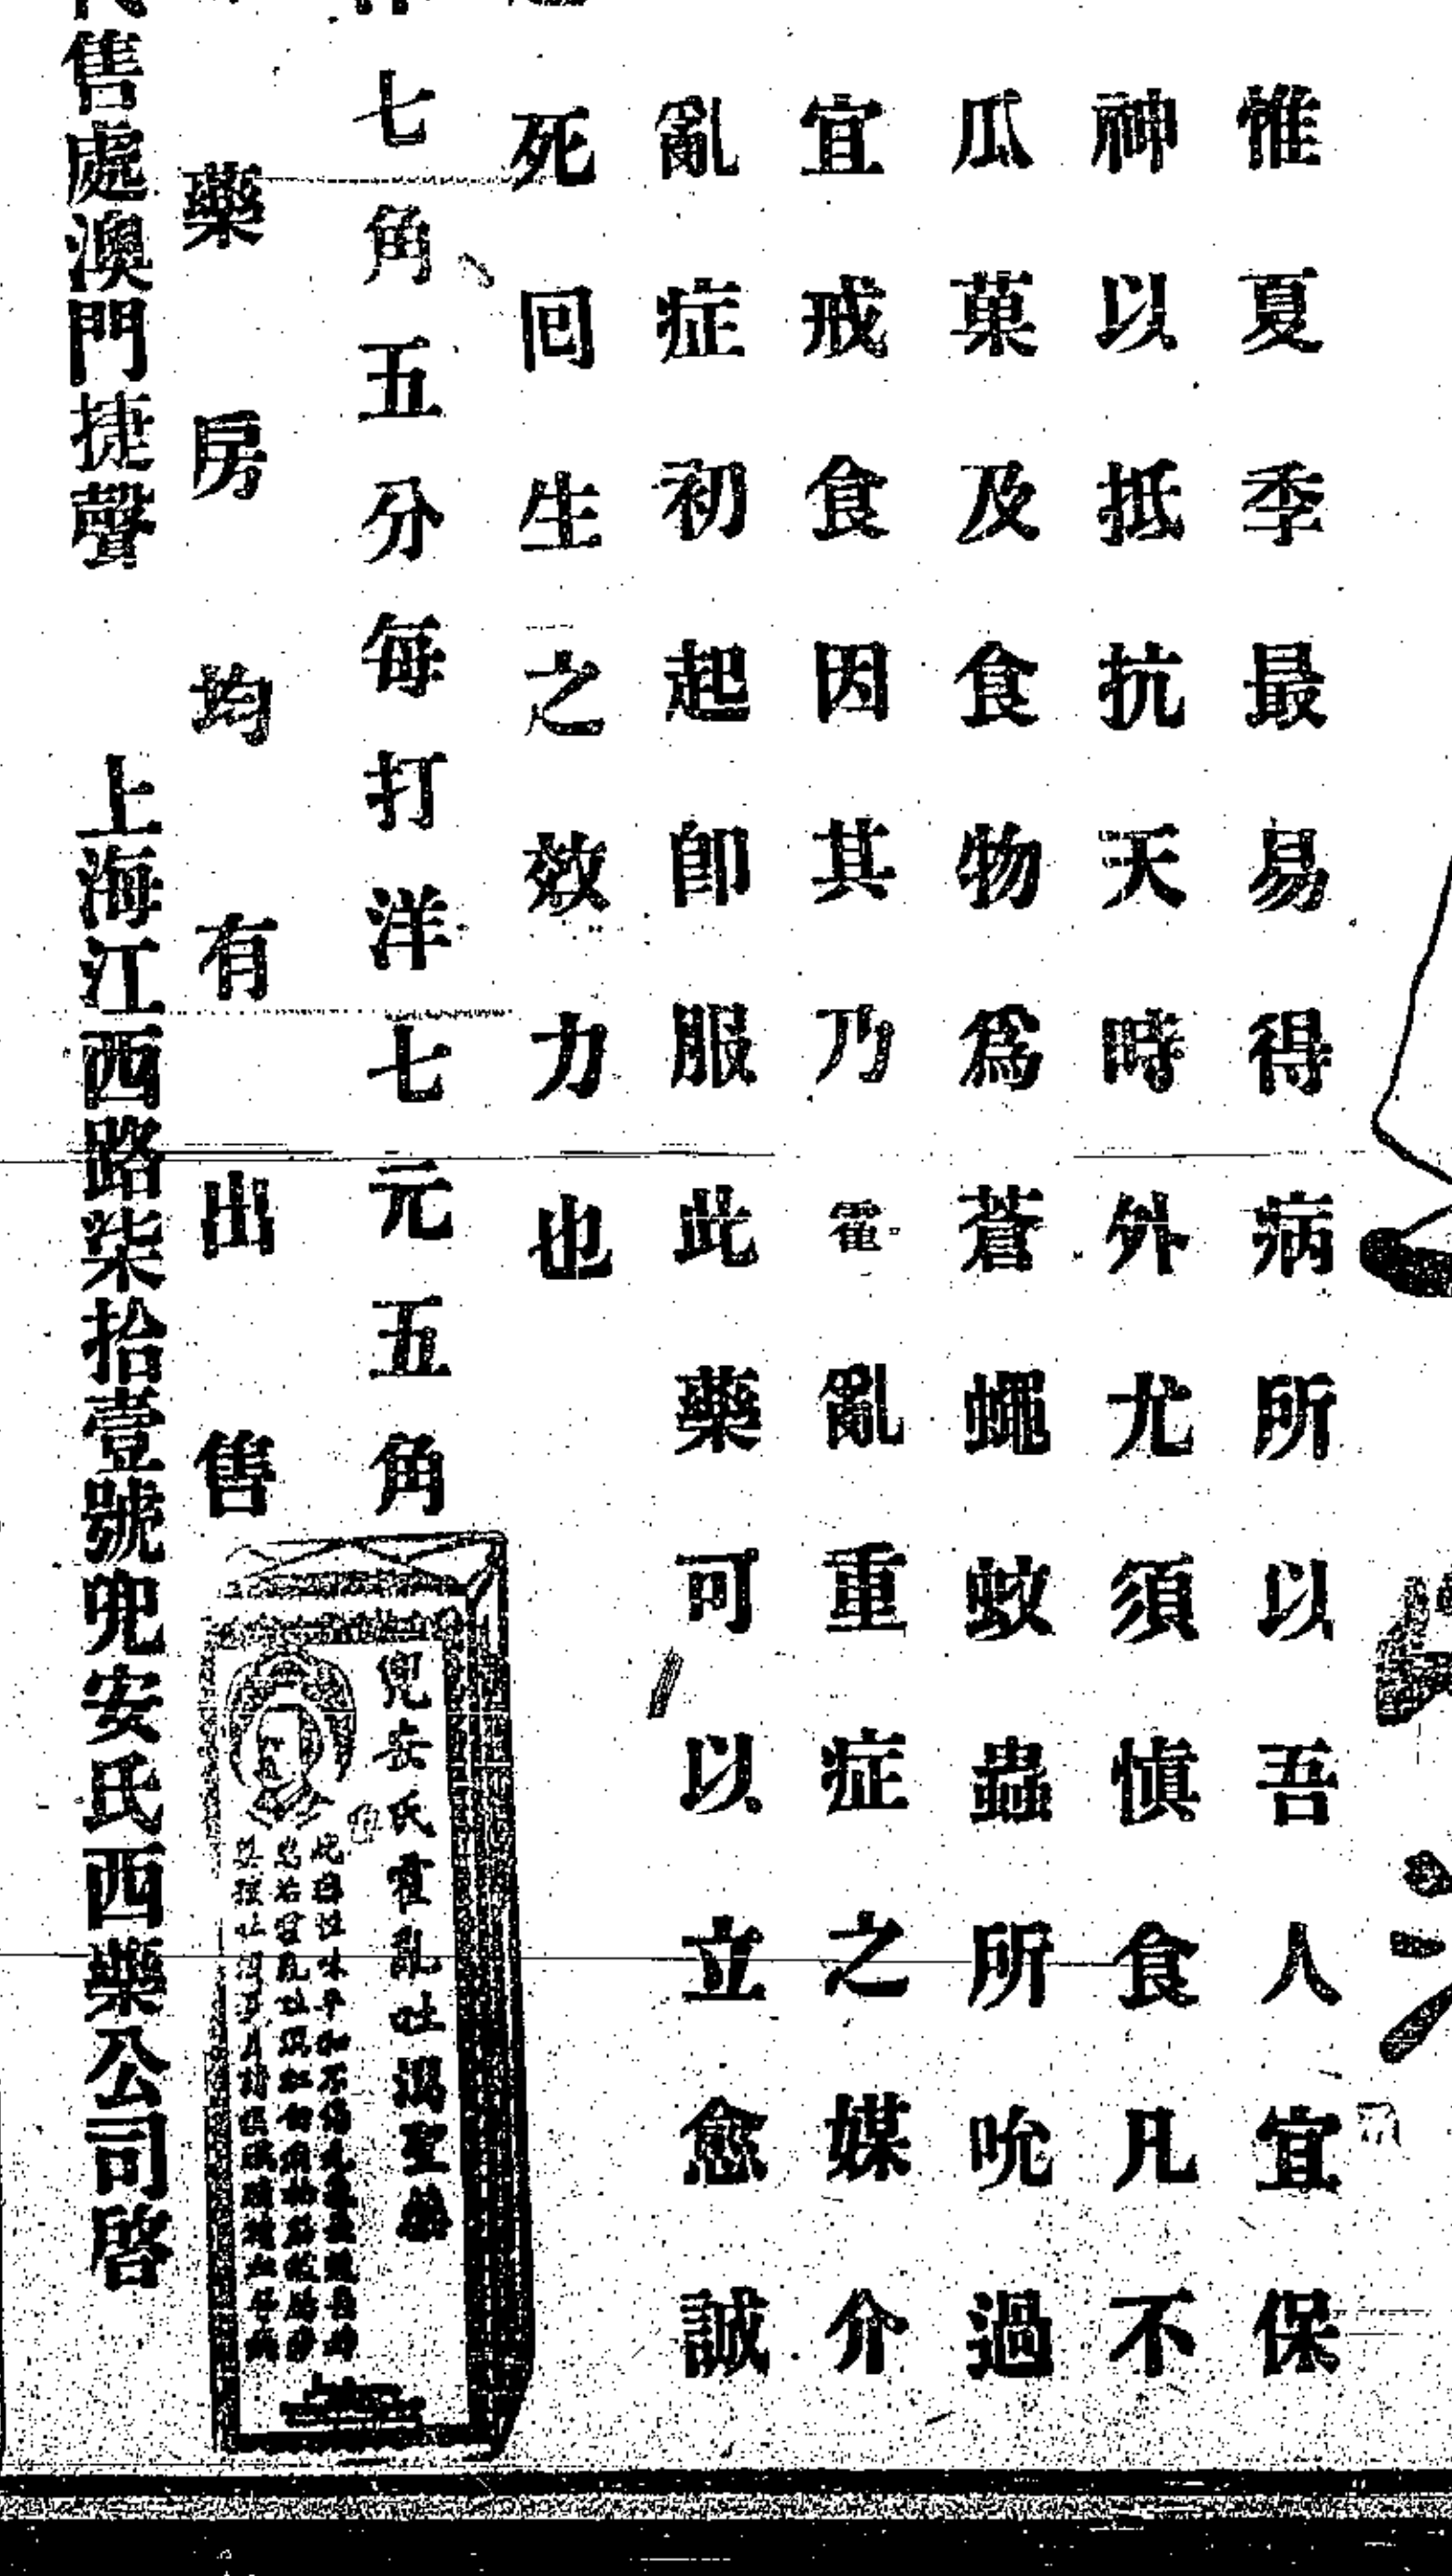 惟夏季最易得病所以吾人宜保
神以抵抗天時外尤須慎食凡不
瓜菓及食物為蒼蠅蚊蟲所吮過
宜戒食因其乃霍亂重症之媒介
亂症初起卽服此藥可以立愈誠
死回生之效力也
七角五分每打洋七元五角
藥房均有出售
售處澳門捷聲 上海江西路柒拾壹號兜安氏西藥公司啓
兜安氏霍亂吐瀉聖藥